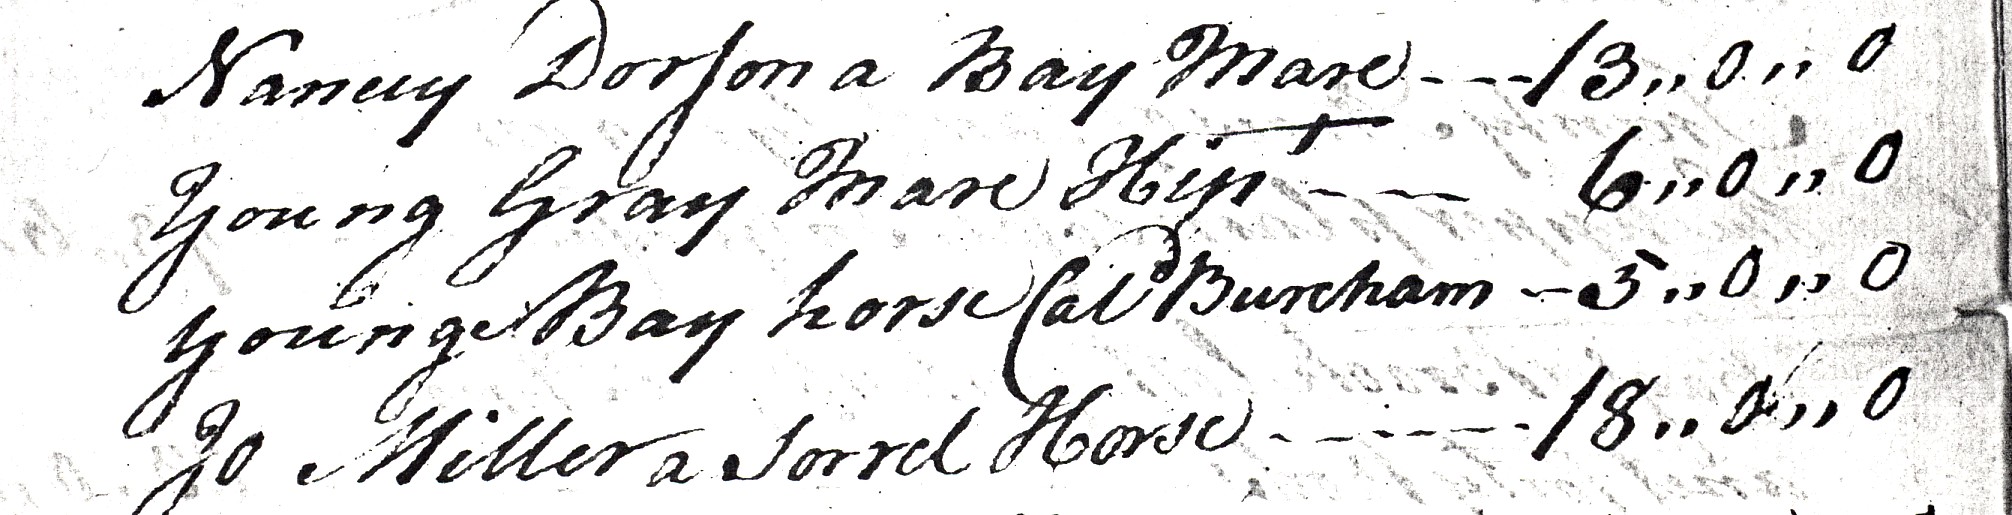 Nancy Dorson a Bay Mare - - - 13,,0,,0
Young Gray Mare Hipt - - - 6,,0,,0
Young Bay horse Cal'd Burcham - 5,,0,,0
Jo Miller a Sorrel Horse - - - - - - 18,,0,,0